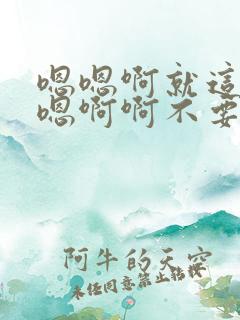 嗯嗯啊就這
嗯啊啊不要
阿牛的天空
未经同意禁止转授